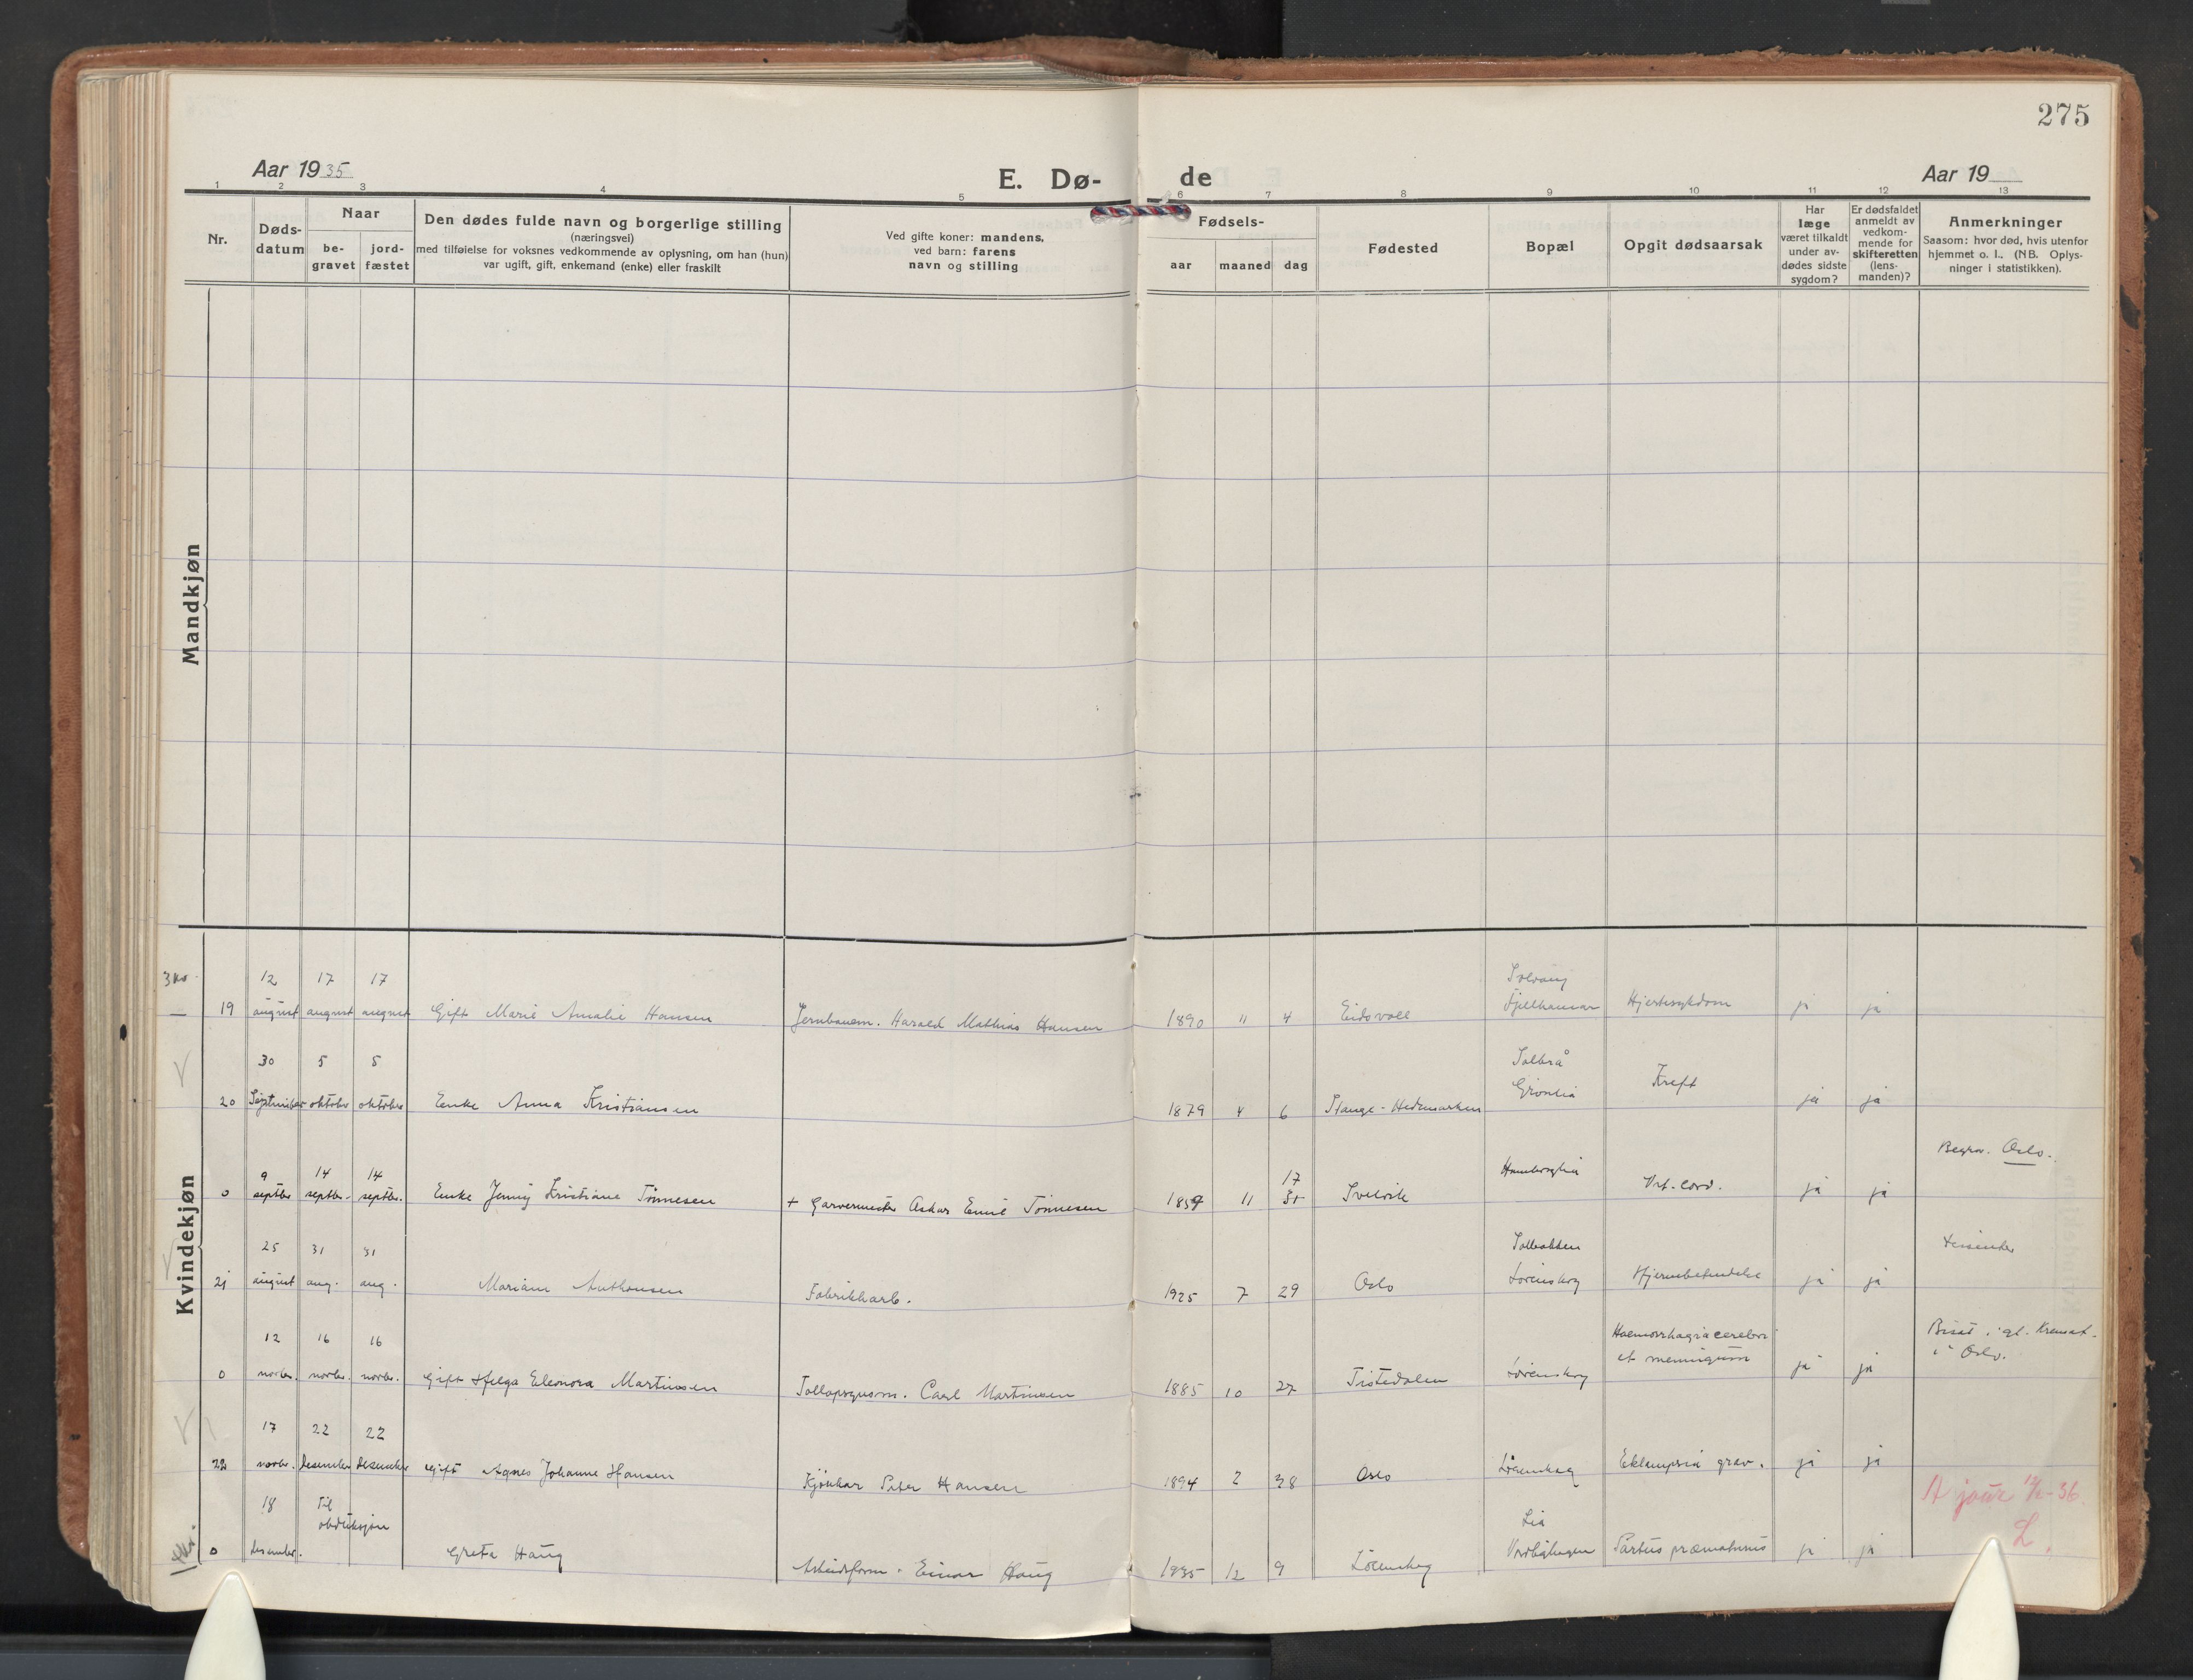 275
Aar 1935
E. Dø-
de
Aar 19
1 2 3 4 5 6 7 8 9 10 11 12 13
Nr.
Døds-
datum
Naar
be-
gravet
jord-
fæstet
Den dødes fulde navn og borgerlige stilling
(næringsvei)
med tilføielse for voksnes vedkommende av oplysning, om han (hun)
var ugift, gift, enkemand (enke) eller fraskilt
Ved gifte koner: mandens,
ved barn: farens
navn og stilling
Fødsels-
aar
maaned
dag
Fødested
Bopæl
Opgit dødsaarsak
Har
læge
været tilkaldt
under av-
dødes sidste
sygdom?
Er dødsfaldet
anmeldt av
vedkom-
mende for
skifteretten
(lens-
manden)?
Anmerkninger
Saasom: hvor død, hvis utenfor
hjemmet o. l., (NB. Oplys-
ninger i statistikken).
Mandkjøn
Kvindekjøn
12 17 17 Solvang
19 august august august Gift Marie Amalie Hansen Jernbanem. Harald Mathias Hansen 1890 11 4 Eidsvoll Fjellhamar Hjertesykdom ja ja
30 5 5 Solbrå
20 September oktober oktober Enke Anna Kristiansen 1879 4 6 Stange - Hedemarken Grønlia Kreft ja ja
Begrav. Oslo.
9 14 14 17
0 septbr septbr. septbr. Enke Jenny Kristiane Tönnesen + Garvermester Oskar Emil Tönnesen 11 31 Svelvik Vit. cord. ja ja
25 31 31 Solbakken
21 august aug. aug. Mariam Anthonsen Fabrikkarb. 1925 7 29 Oslo Lørenskog Hjernebetendelse ja ja
12 16 16 Haemorrhagia cerebri Bisat i gl. Kremat.
0 novbr. novbr. novbr. Gift Helga Eleonora Martinsen Tollopsynsm. Carl Martinsen 1885 10 27 Tistedalen Lørenskog et meningum ja ja i Oslo.
17 22 22
22 novbr. desember desember Gift Agnes Johanne Hansen Peter Hansen 1894 2 28 Oslo Lørenskog Eklampsia grav. ja ja
A jour 36
L.
18 Til
obduksjon Lia
0 desember. Greta Haug Arbeidsform. Einar Haug 1935 12 9 Lörenskog Partus præmaturus ja ja